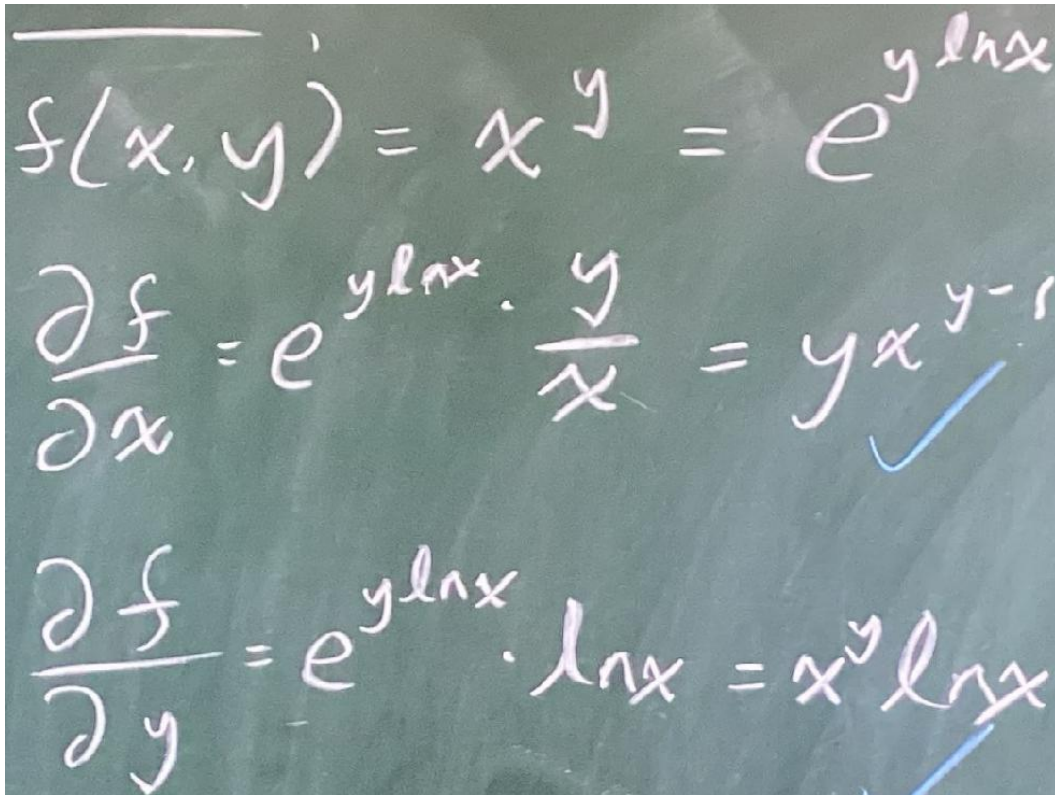 f(x, y) = x^y = e^{y ln x}
∂f/∂x = e^{y ln x} · y/x = yx^{y-1}
∂f/∂y = e^{y ln x} · ln x = x^y ln x